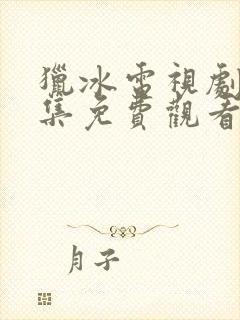 獵冰電視劇
集免費觀看
月子